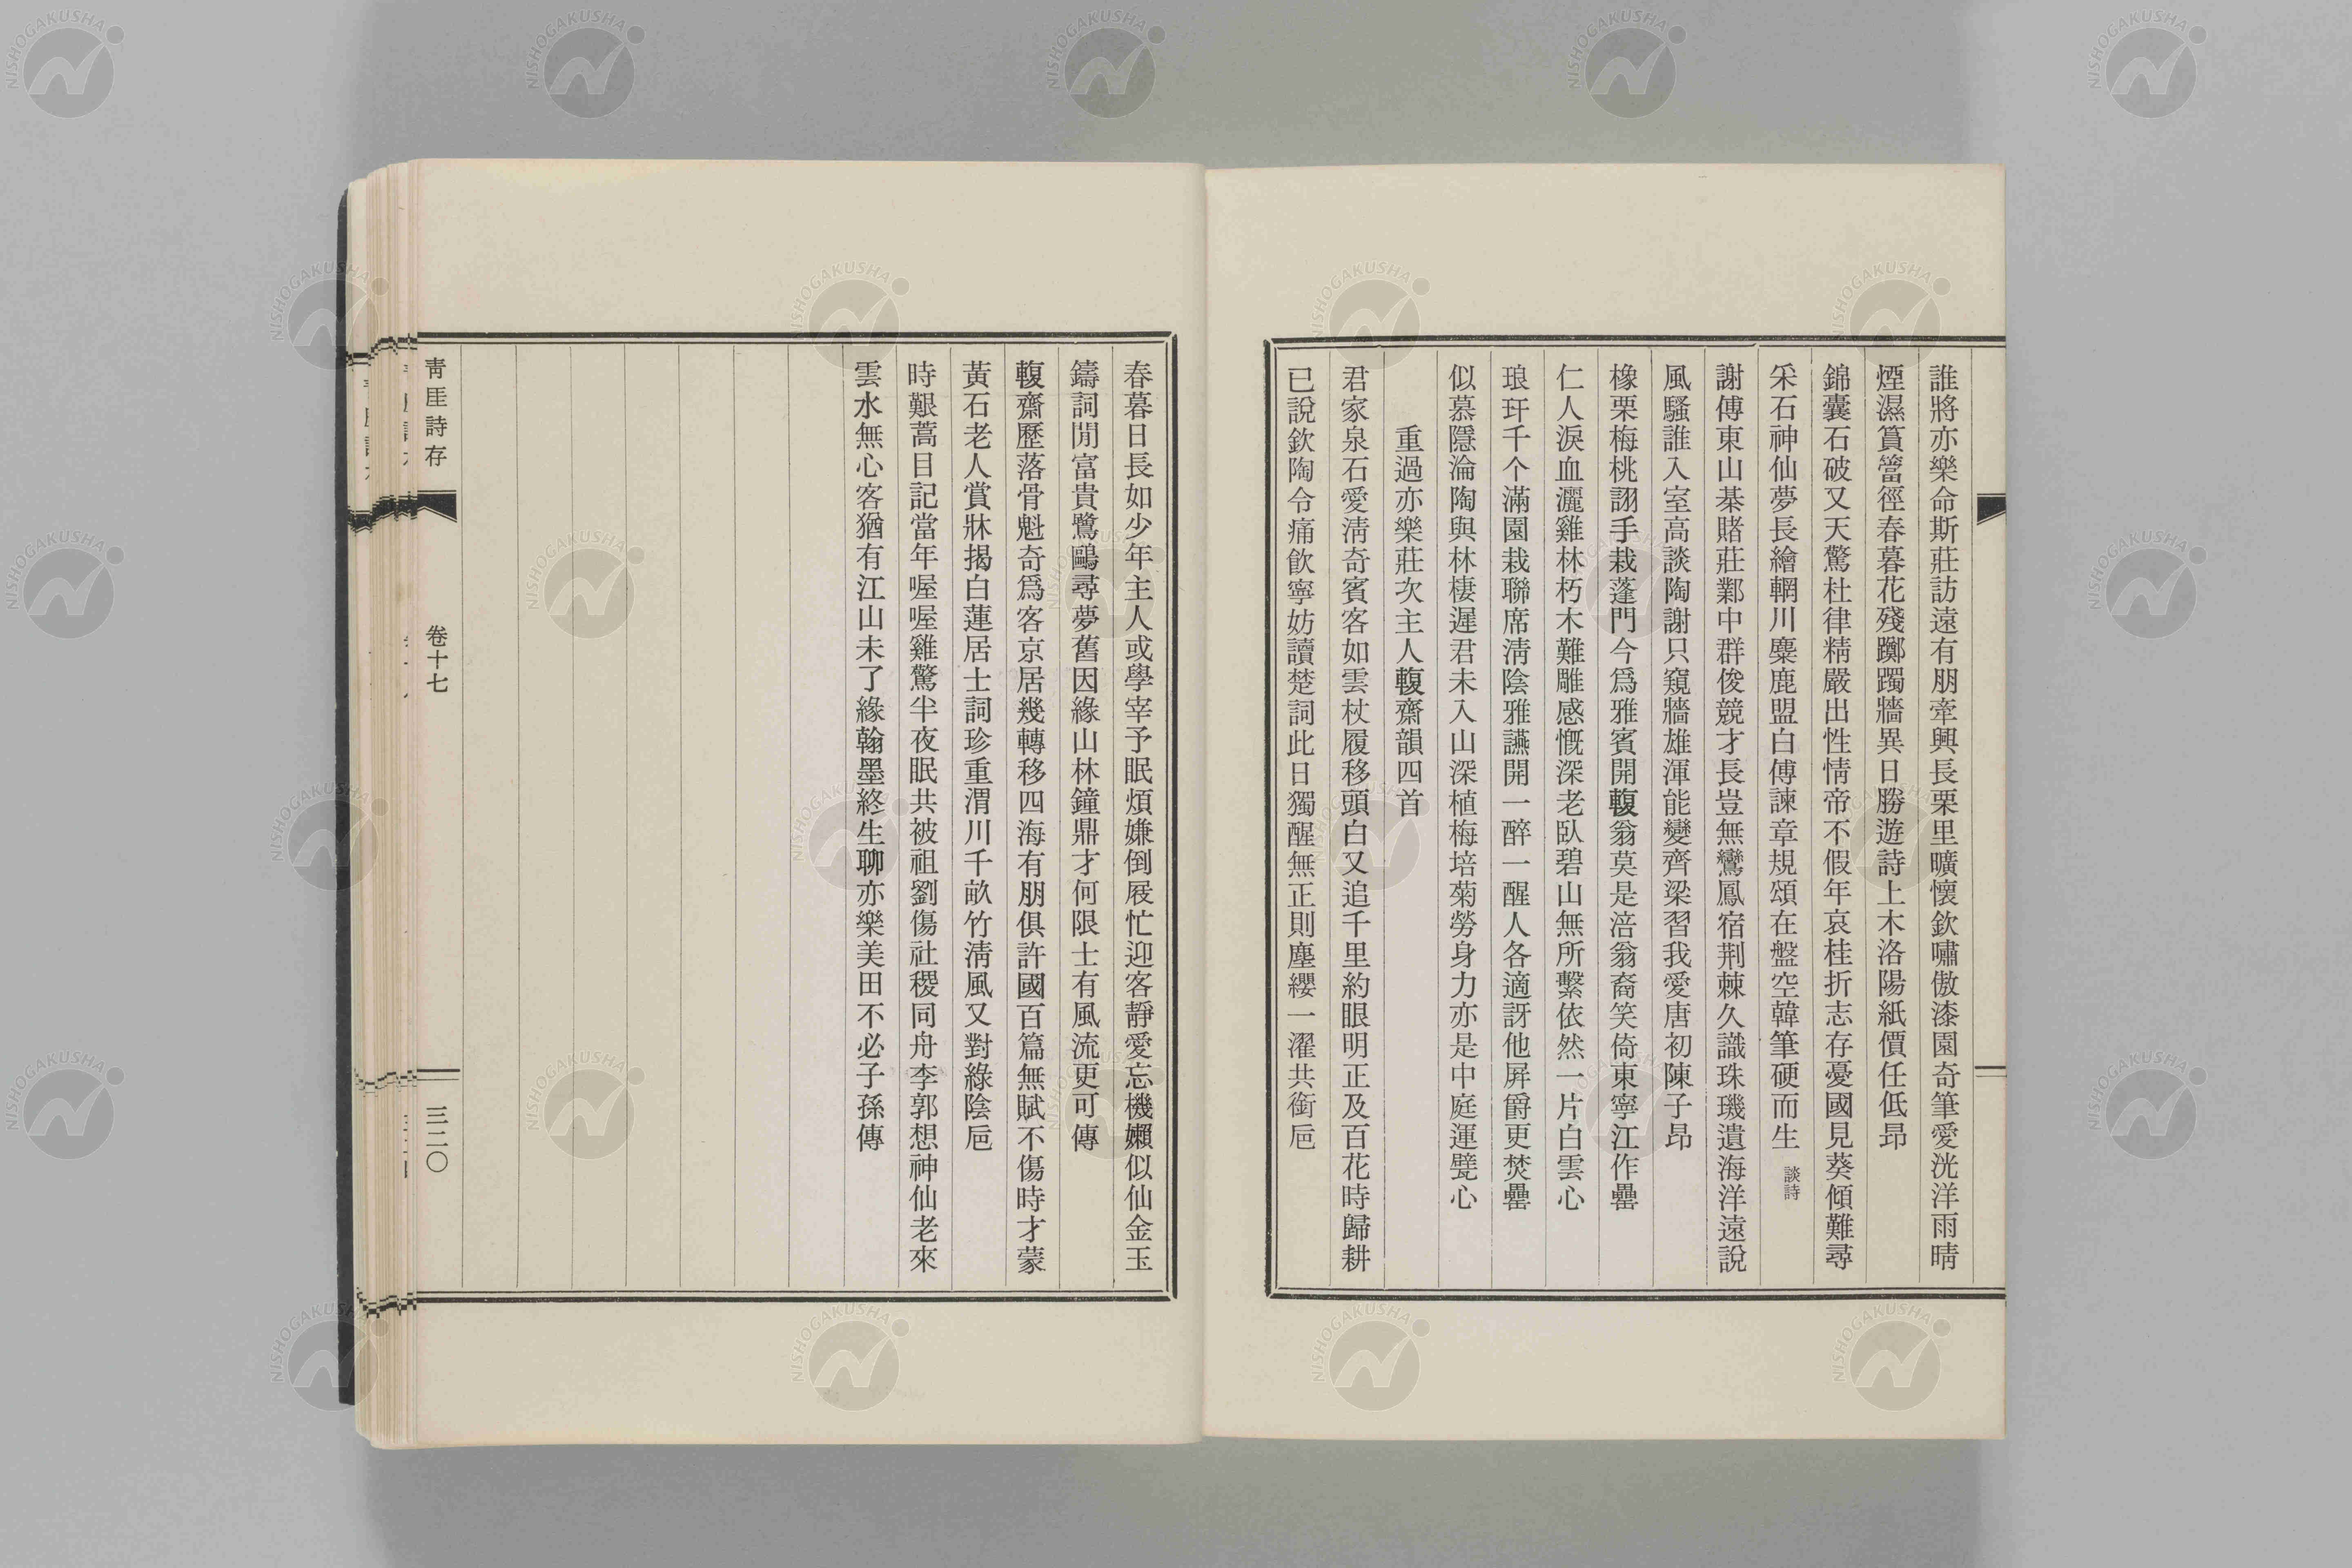 誰將亦樂命斯莊訪遠有朋牽興長栗里曠懷欽嘯傲漆園奇筆愛洸洋雨晴
煙濕篔簹徑春暮花殘躑躅牆異日勝遊詩上木洛陽紙價任低昻
錦囊石破又天驚杜律精嚴出性情帝不假年哀桂折志存憂國見葵傾難尋
采石神仙夢長繪輞川麋鹿盟白傅諫章規頌在盤空韓筆硬而生 談詩
謝傅東山棊賭莊鄴中群俊競才長豈無鸞鳳宿荆棘久識珠璣遺海洋遠說
風騷誰入室高談陶謝只窺牆雄渾能變齊梁習我愛唐初陳子昻
橡栗梅桃詡手栽蓬門今爲雅賓開輹翁莫是涪翁裔笑倚東寧江作罍
仁人淚血灑雞林朽木難雕感慨深老臥碧山無所繫依然一片白雲心
琅玕千个滿園栽聯席淸陰雅讌開一醉一醒人各適訝他屏爵更焚罍
似慕隱淪陶與林棲遲君未入山深植梅培菊勞身力亦是中庭運甓心
重過亦樂莊次主人輹齋韻四首
君家泉石愛淸奇賓客如雲杖履移頭白又追千里約眼明正及百花時歸耕
已說欽陶令痛飮寧妨讀楚詞此日獨醒無正則塵纓一濯共銜巵
春暮日長如少年主人或學宰予眠煩嫌倒屐忙迎客靜愛忘機嬾似仙金玉
鑄詞閒富貴鷺鷗尋夢舊因緣山林鐘鼎才何限士有風流更可傳
輹齋歷落骨魁奇爲客京居幾轉移四海有朋俱許國百篇無賦不傷時才蒙
黃石老人賞牀揭白蓮居士詞珍重渭川千畝竹淸風又對綠陰巵
時艱蒿目記當年喔喔雞驚半夜眠共被祖劉傷社稷同舟李郭想神仙老來
雲水無心客猶有江山未了緣翰墨終生聊亦樂美田不必子孫傳
靑厓詩存
卷十七
三二〇
NISHOGAKUSHA